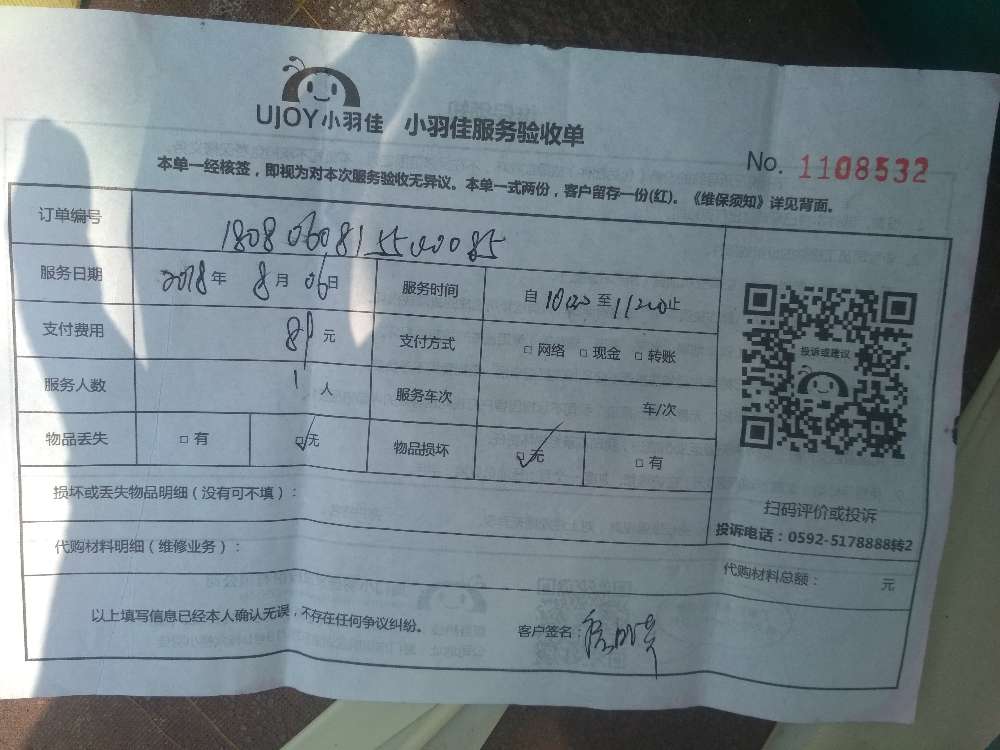 UJOY小羽佳 小羽佳服务验收单
No. 1108532
本单一经核签，即视为对本次服务验收无异议。本单一式两份，客户留存一份(红)。《维保须知》详见背面。
订单编号 180806081550085
服务日期 2018年 8月 06日 服务时间 自 1000 至 1200止
支付费用 元 支付方式 □ 网络 □ 现金 □ 转账
服务人数 1 人 服务车次 车/次
物品丢失 □ 有 □无 物品损坏 □无 □ 有
投诉或建议
扫码评价或投诉
投诉电话：0592-5178888转2
损坏或丢失物品明细（没有可不填）：
代购材料明细（维修业务）：
代购材料总额： 元
以上填写信息已经本人确认无误，不存在任何争议纠纷。 客户签名：